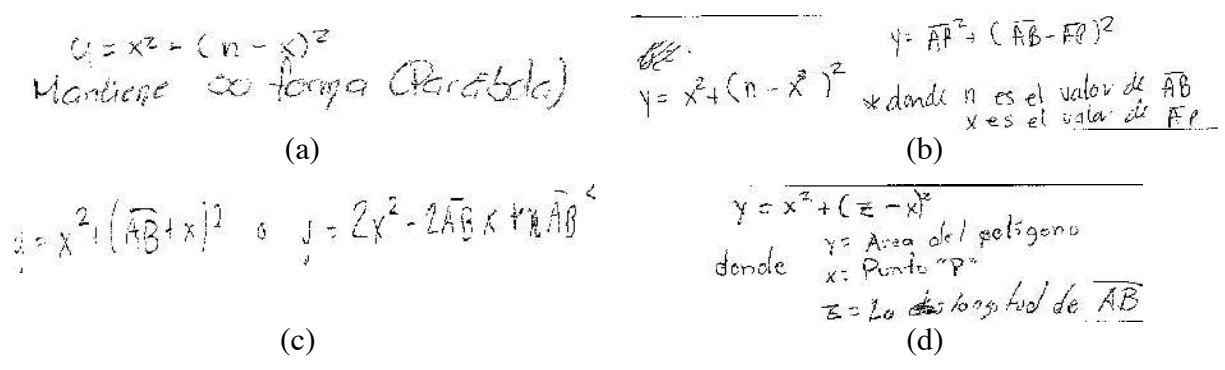 y = x² - (n - x)²
Mantiene su forma (Parábola)
(a)
y = \overline{AP}² + (\overline{AB} - \overline{AP})²
y = x² + (n - x²)²
* donde n es el valor de \overline{AB}
x es el valor de \overline{AP}
(b)
y = x² + (\overline{AB} + x)² o y = 2x² - 2\overline{AB}x + \overline{AB}²
(c)
y = x² + (z - x)²
donde y = Area del poligono
x = Punto "P"
z = La longitud de \overline{AB}
(d)